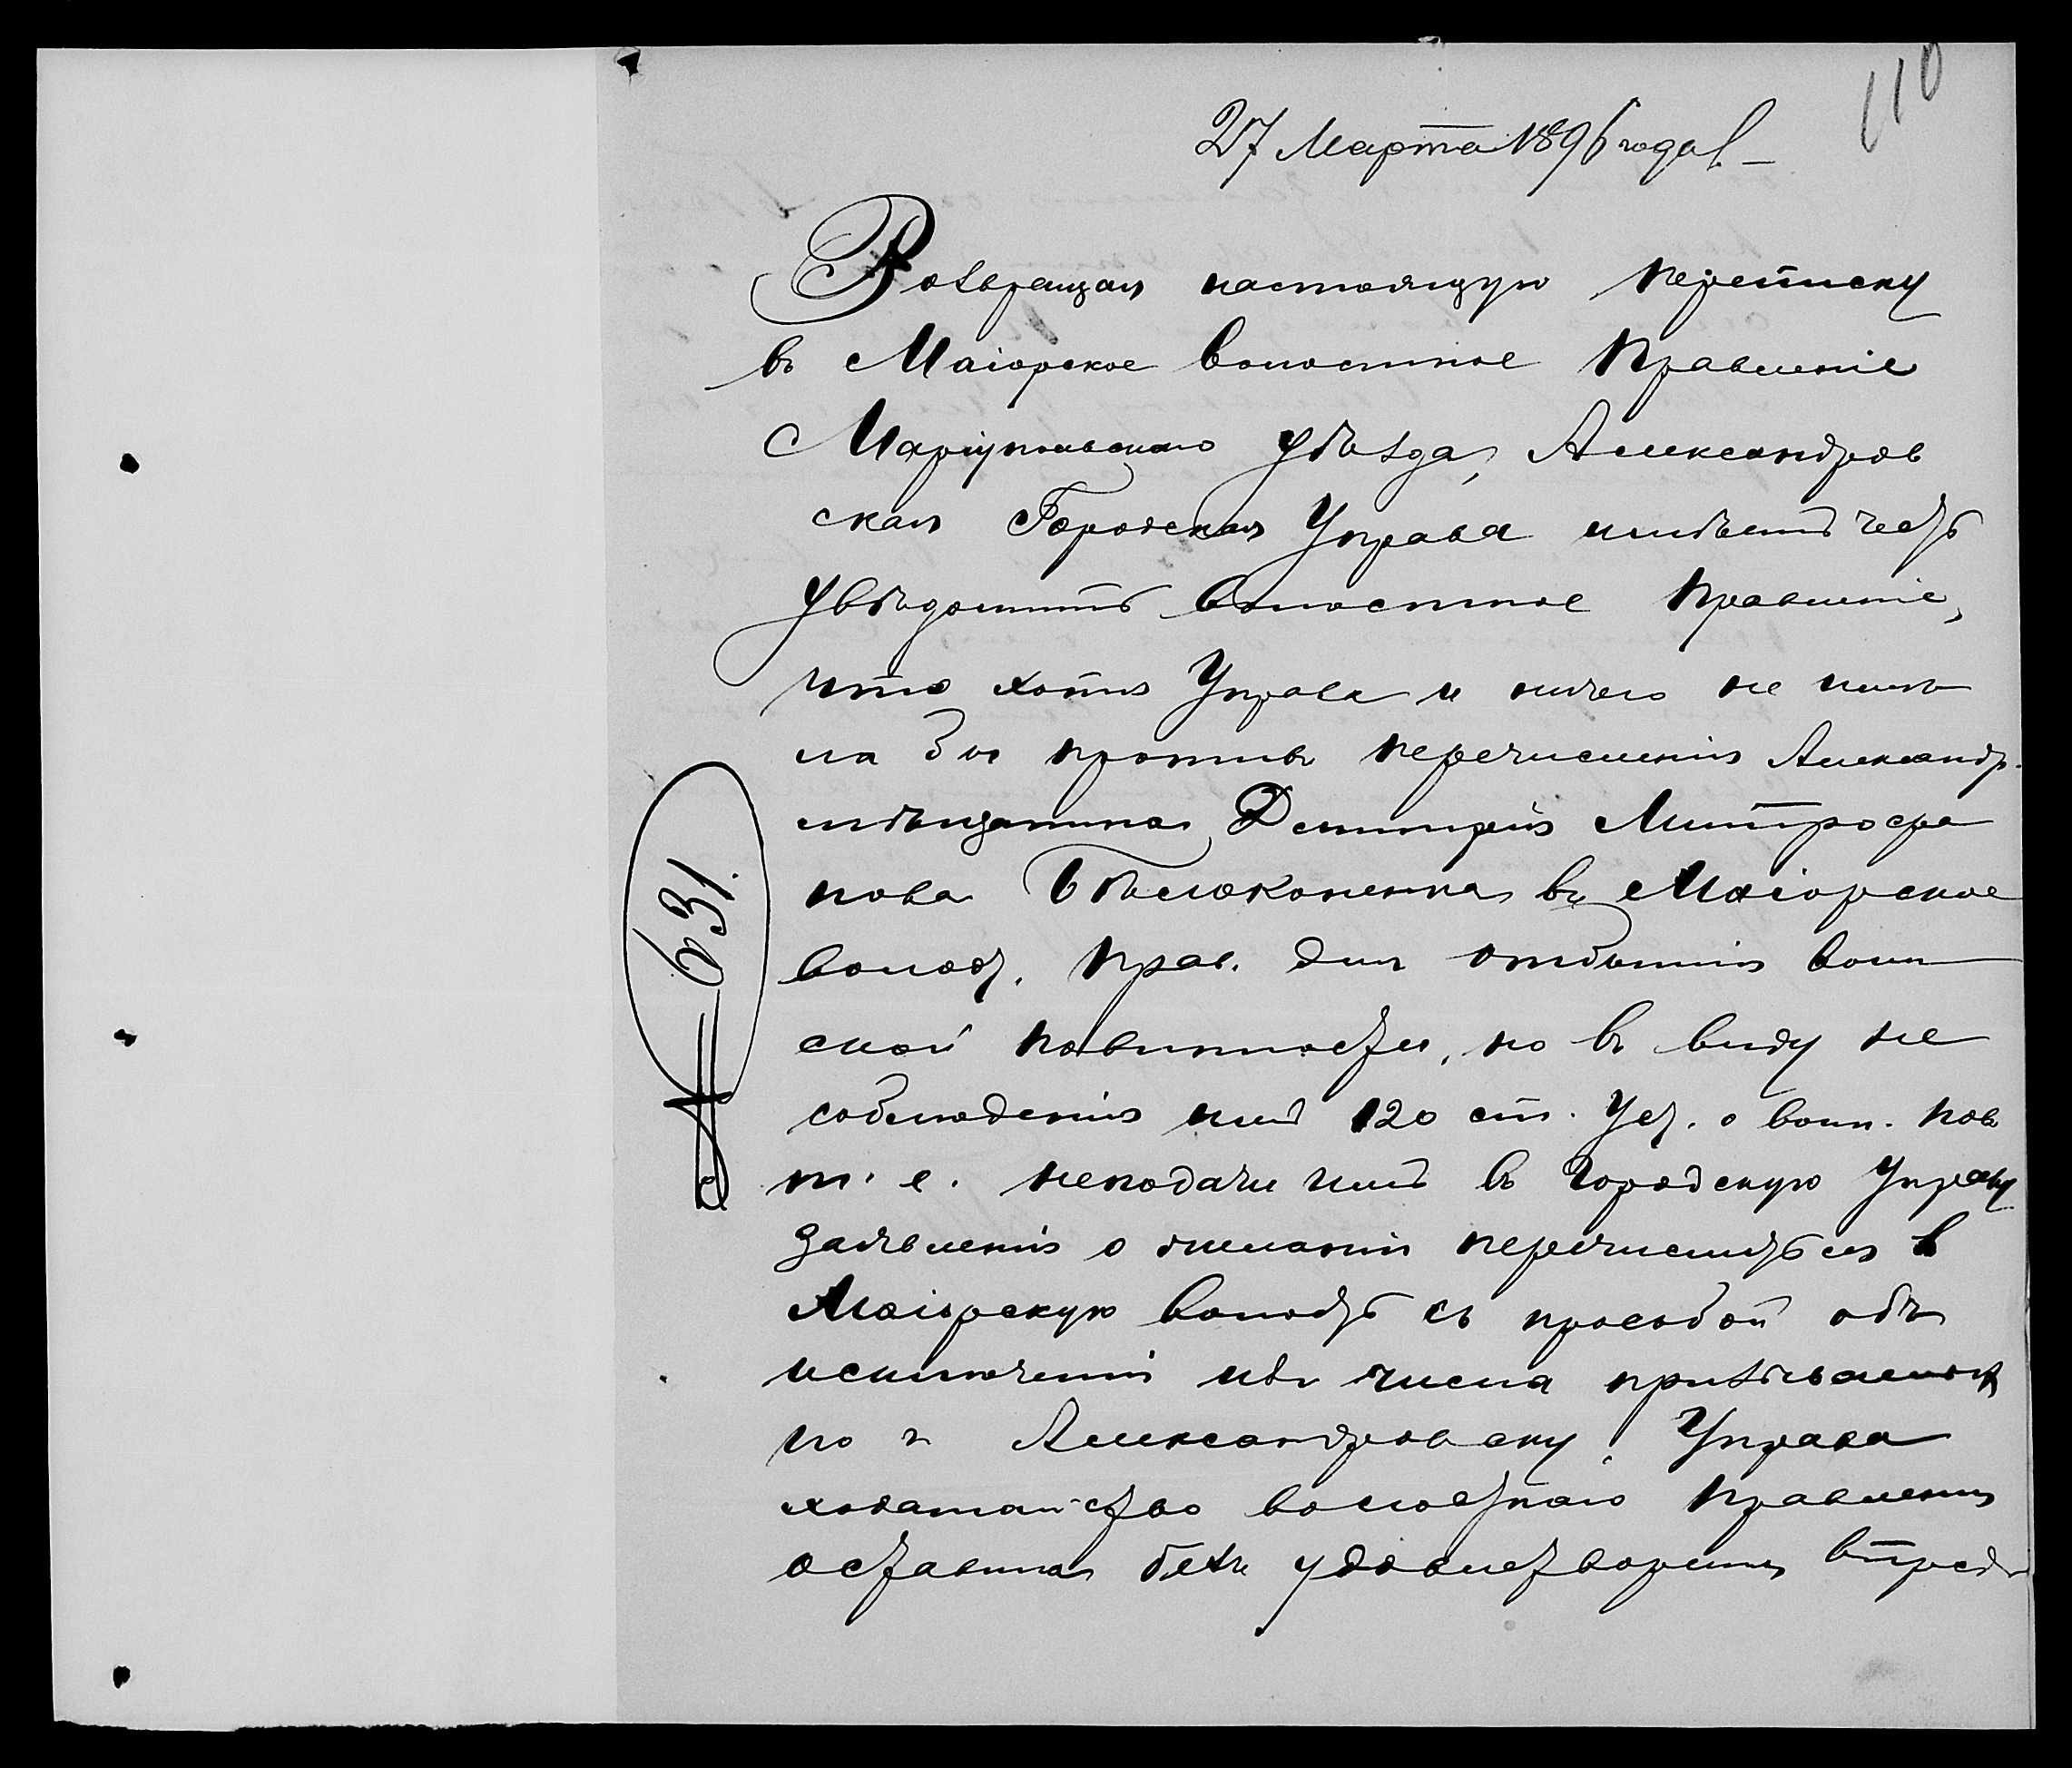 110
27 Марта 1896 года
Возвращая настоящую переписку
въ Маіорское волостное Правленіе
Маріупольскаго уѣзда, Александров
ская Городская Управа имѣетъ честь
увѣдомить волостное Правленіе,
что хотя Управа и ничего не имѣ
ла бы противъ перечисленія Александр.
мѣщанина Димитрія Митрофа
нова Бѣлоконенка въ Маіорское
волост. Прав. для отбытія воин
ской повинности, но въ виду не
соблюденія имъ 120 ст. Уст. о воин. пов
т. е. неподачи имъ въ Городскую Управу
заявленія о желаніи перечислиться в
Маіорскую волость съ просьбой объ
исключеніи изъ числа призываемыхъ
по г. Александровску, Управа
ходатайство волостнаго Правленія
оставила безъ удовлетворенія впредь
№ 631.